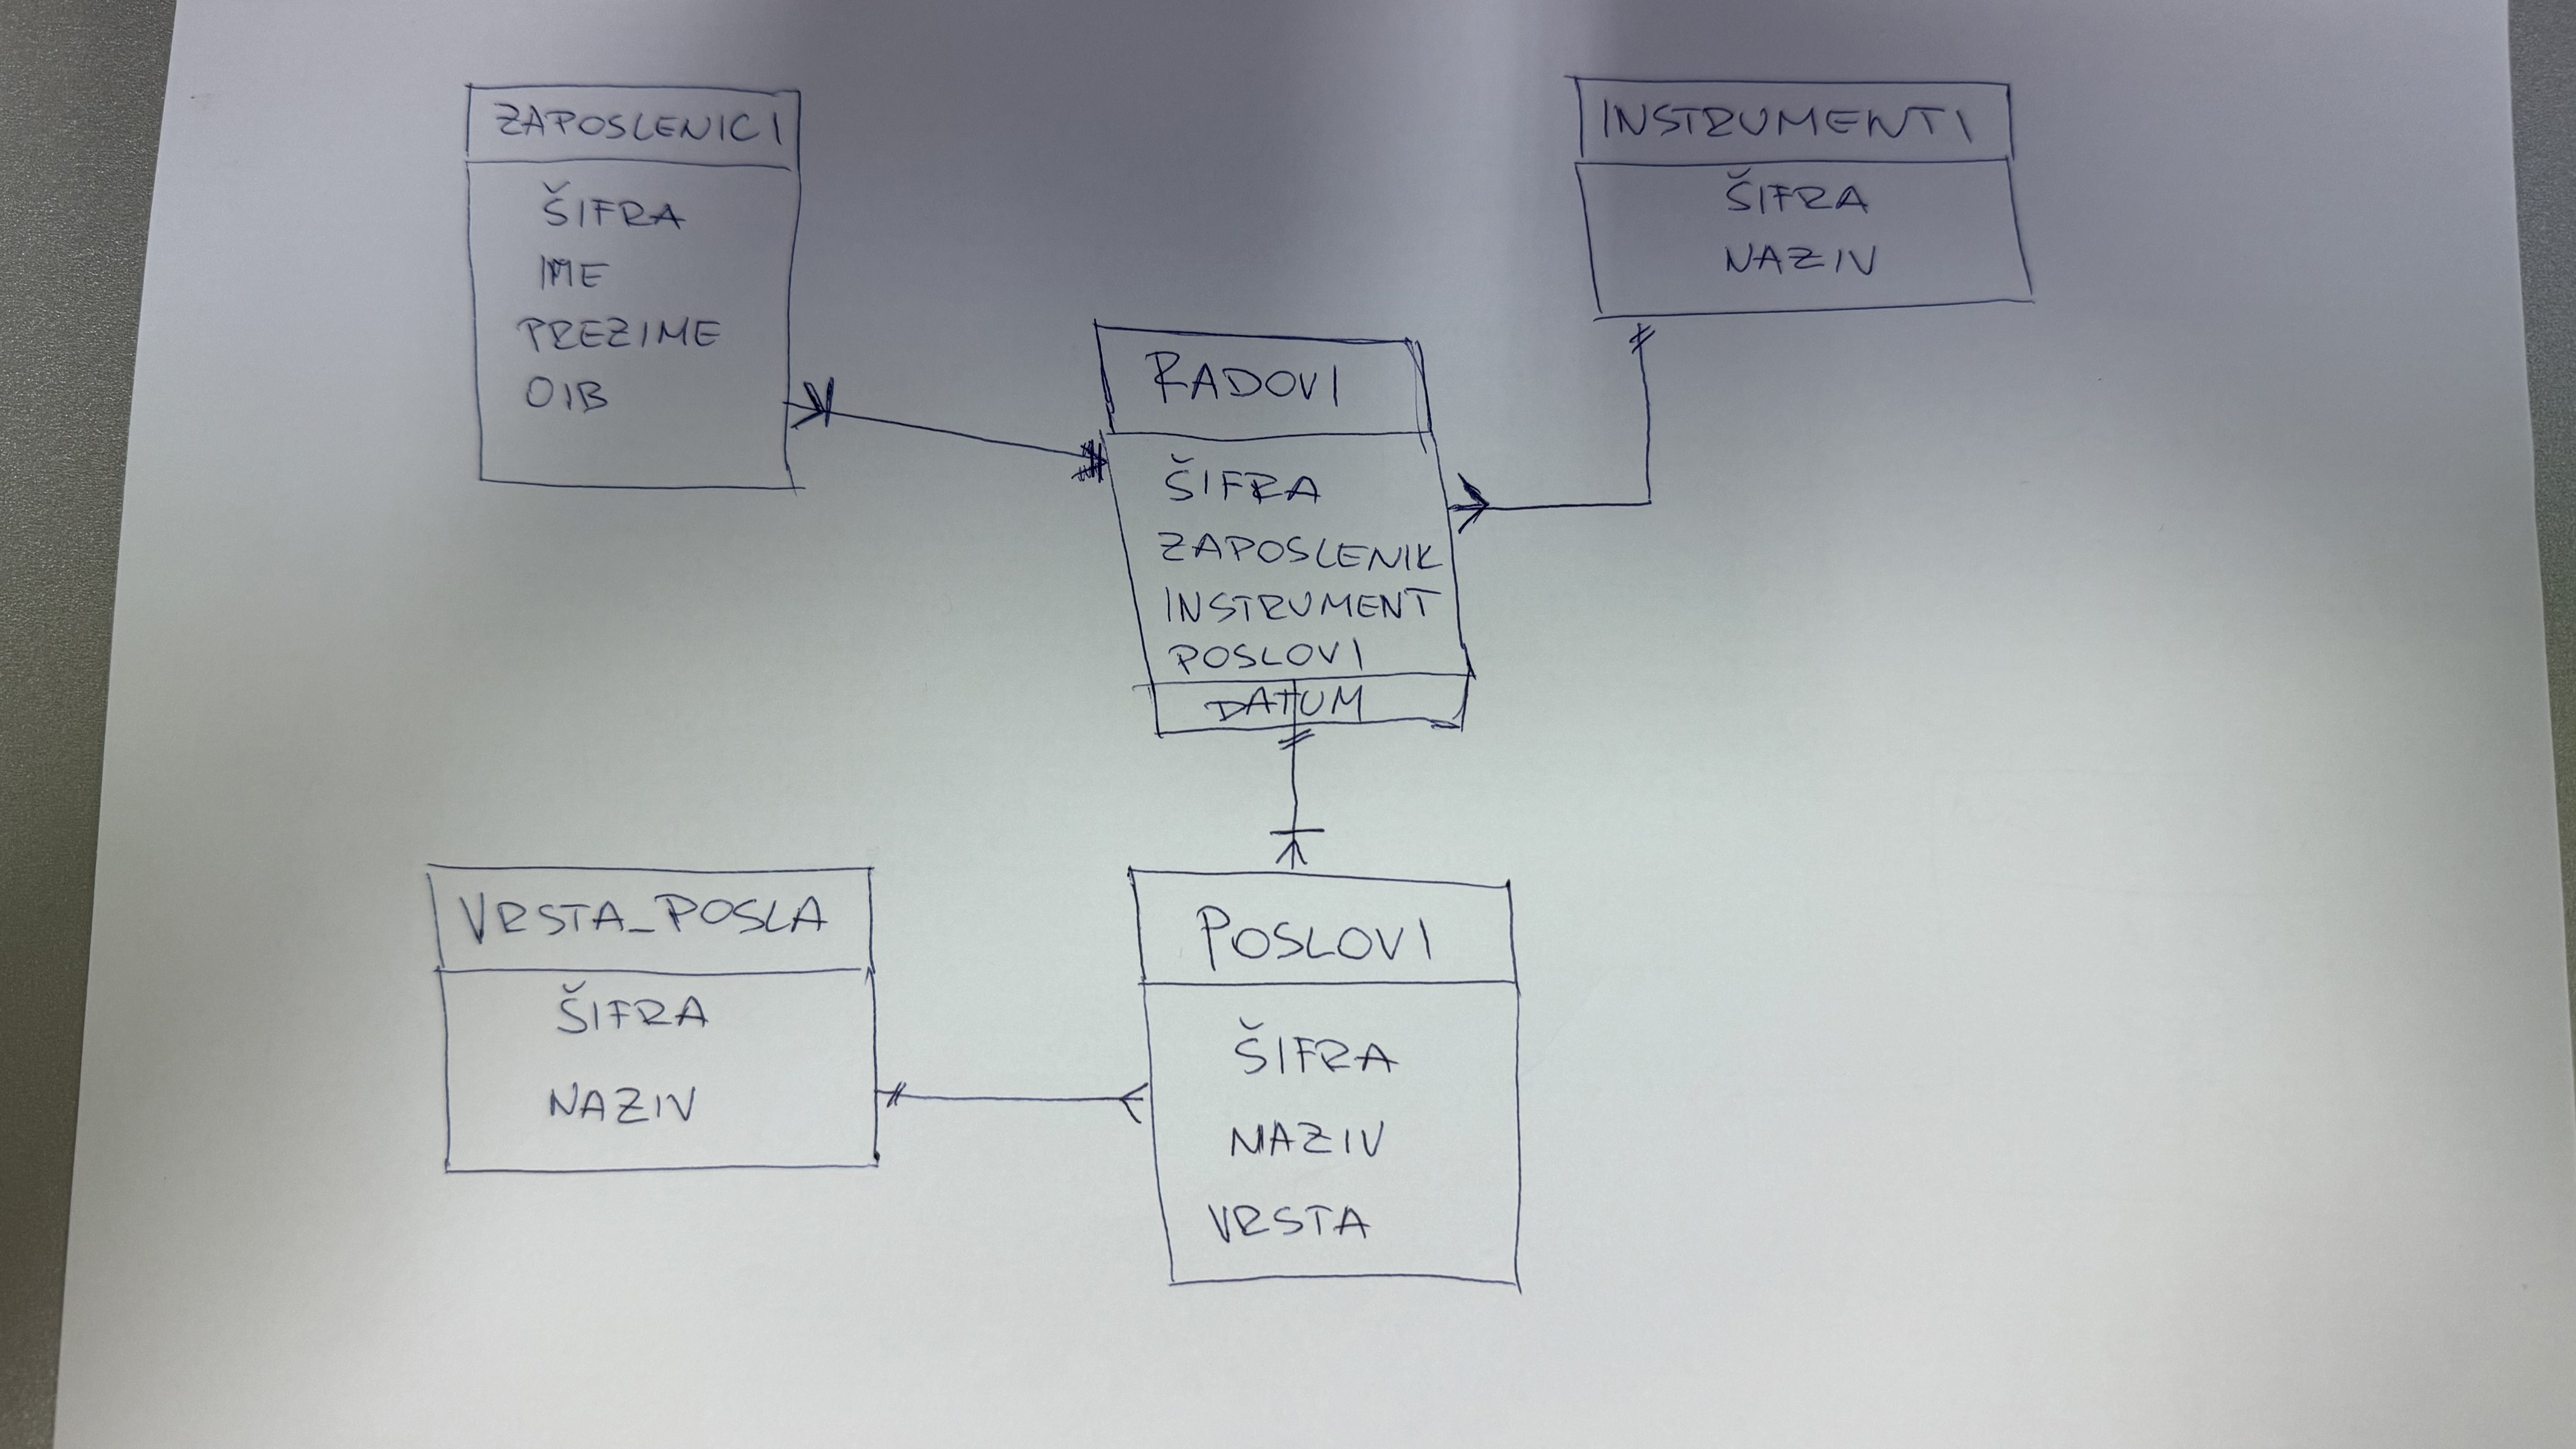 ZAPOSLENICI
ŠIFRA
IME
PREZIME
OIB
INSTRUMENTI
ŠIFRA
NAZIV
RADOVI
ŠIFRA
ZAPOSLENIK
INSTRUMENT
POSLOVI
DATUM
VRSTA_POSLA
ŠIFRA
NAZIV
POSLOVI
ŠIFRA
NAZIV
VRSTA